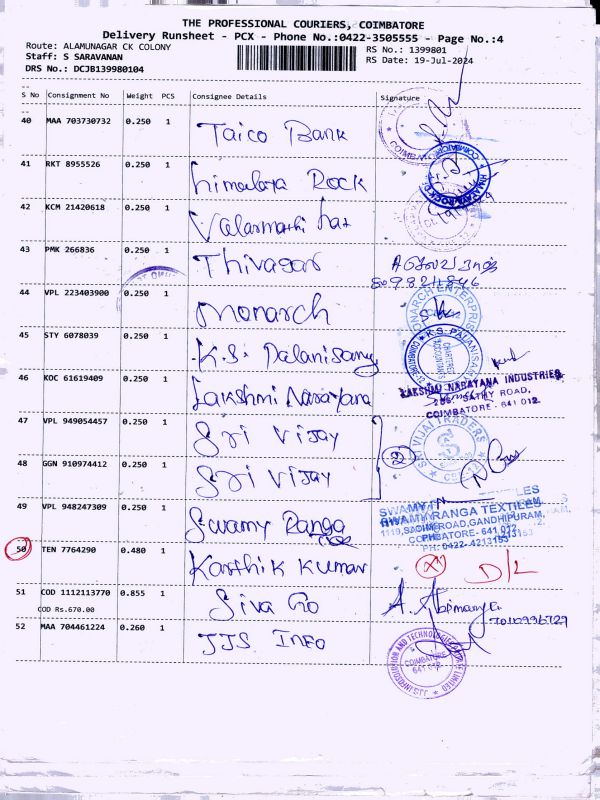 THE PROFESSIONAL COURIERS, COIMBATORE
Delivery Runsheet - PCX - Phone No.:0422-3505555 - Page No.:4
Route: ALAMUNAGAR CK COLONY
RS No.: 1399801
Staff: S SARAVANAN
RS Date: 19-Jul-2024
DRS No.: DCJB139980104
S No Consignment No Weight PCS Consignee Details Signature
40 MAA 703730732 0.250 1 Taico Bank
41 RKT 8955526 0.250 1 himalaya Rock
42 KCM 21420618 0.250 1
43 PMK 266836 0.250 1 Thivagar
44 VPL 223403900 0.250 1 Monarch
MONARCH ENTERPRISES
45 STY 6078039 0.250 1 K.S. Palanisamy
K.S. PALANISAMY
CHARTERED ACCOUNTANTS
COIMBATORE
46 KOC 61619409 0.250 1 Lakshmi Narayana
LAKSHMI NARAYANA INDUSTRIES
SATHY ROAD,
COIMBATORE - 641 012.
47 VPL 949054457 0.250 1 Sri Vijay
SRI VIJAI TRADERS
2
48 GGN 910974412 0.250 1 Sri Vijay
49 VPL 948247309 0.250 1 Swamy Ranga Tex
SWAMY RANGA TEXTILES
1119, SATHY ROAD, GANDHIPURAM,
COIMBATORE- 641 012
PH: 0422- 4213153
50 TEN 7764290 0.480 1 Karthik Kumar D/L
51 COD 1112113770 0.855 1 Siva Go
COD Rs.670.00
52 MAA 704461224 0.260 1 JJS INFO
COIMBATORE
641 012